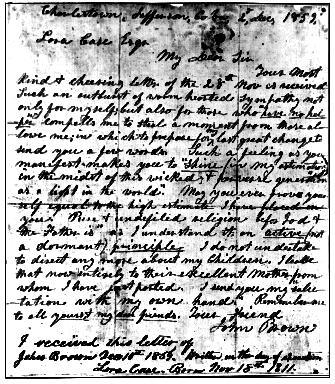 Charlestown, Jefferson, Co Va, 2d Dec, 1859,
Lora Case Esqr
My Dear Sir
Your Most
kind & cheering letter of the 28th Nov is received
Such an outburst of warm hearted Sympathy not
only for myself but also for those who have no hel-
per compells me to steal a moment from those al-
me in which to prepare for my last great change to
send you a few words. Such a feeling as you
manifest makes you to "shine in my estimation
in the midst of this wicked & perverse generation
as a light in the world" May you ever prove your
self equal to the high estimate I have placed on
you. Pure & undefiled religion before God &
the Father is" as I understand it an active not
a dormant principle. I do not undertake
to direct any more about my Children. I leave
that now entirely to their excellent Mother from
whom I have just parted. I send you my salu-
tation with my own hand. Remember me
to all yours & my dear friends. Your Friend
John Brown
I received this letter of
John Brown
Lora Case. Born Nov 1811.